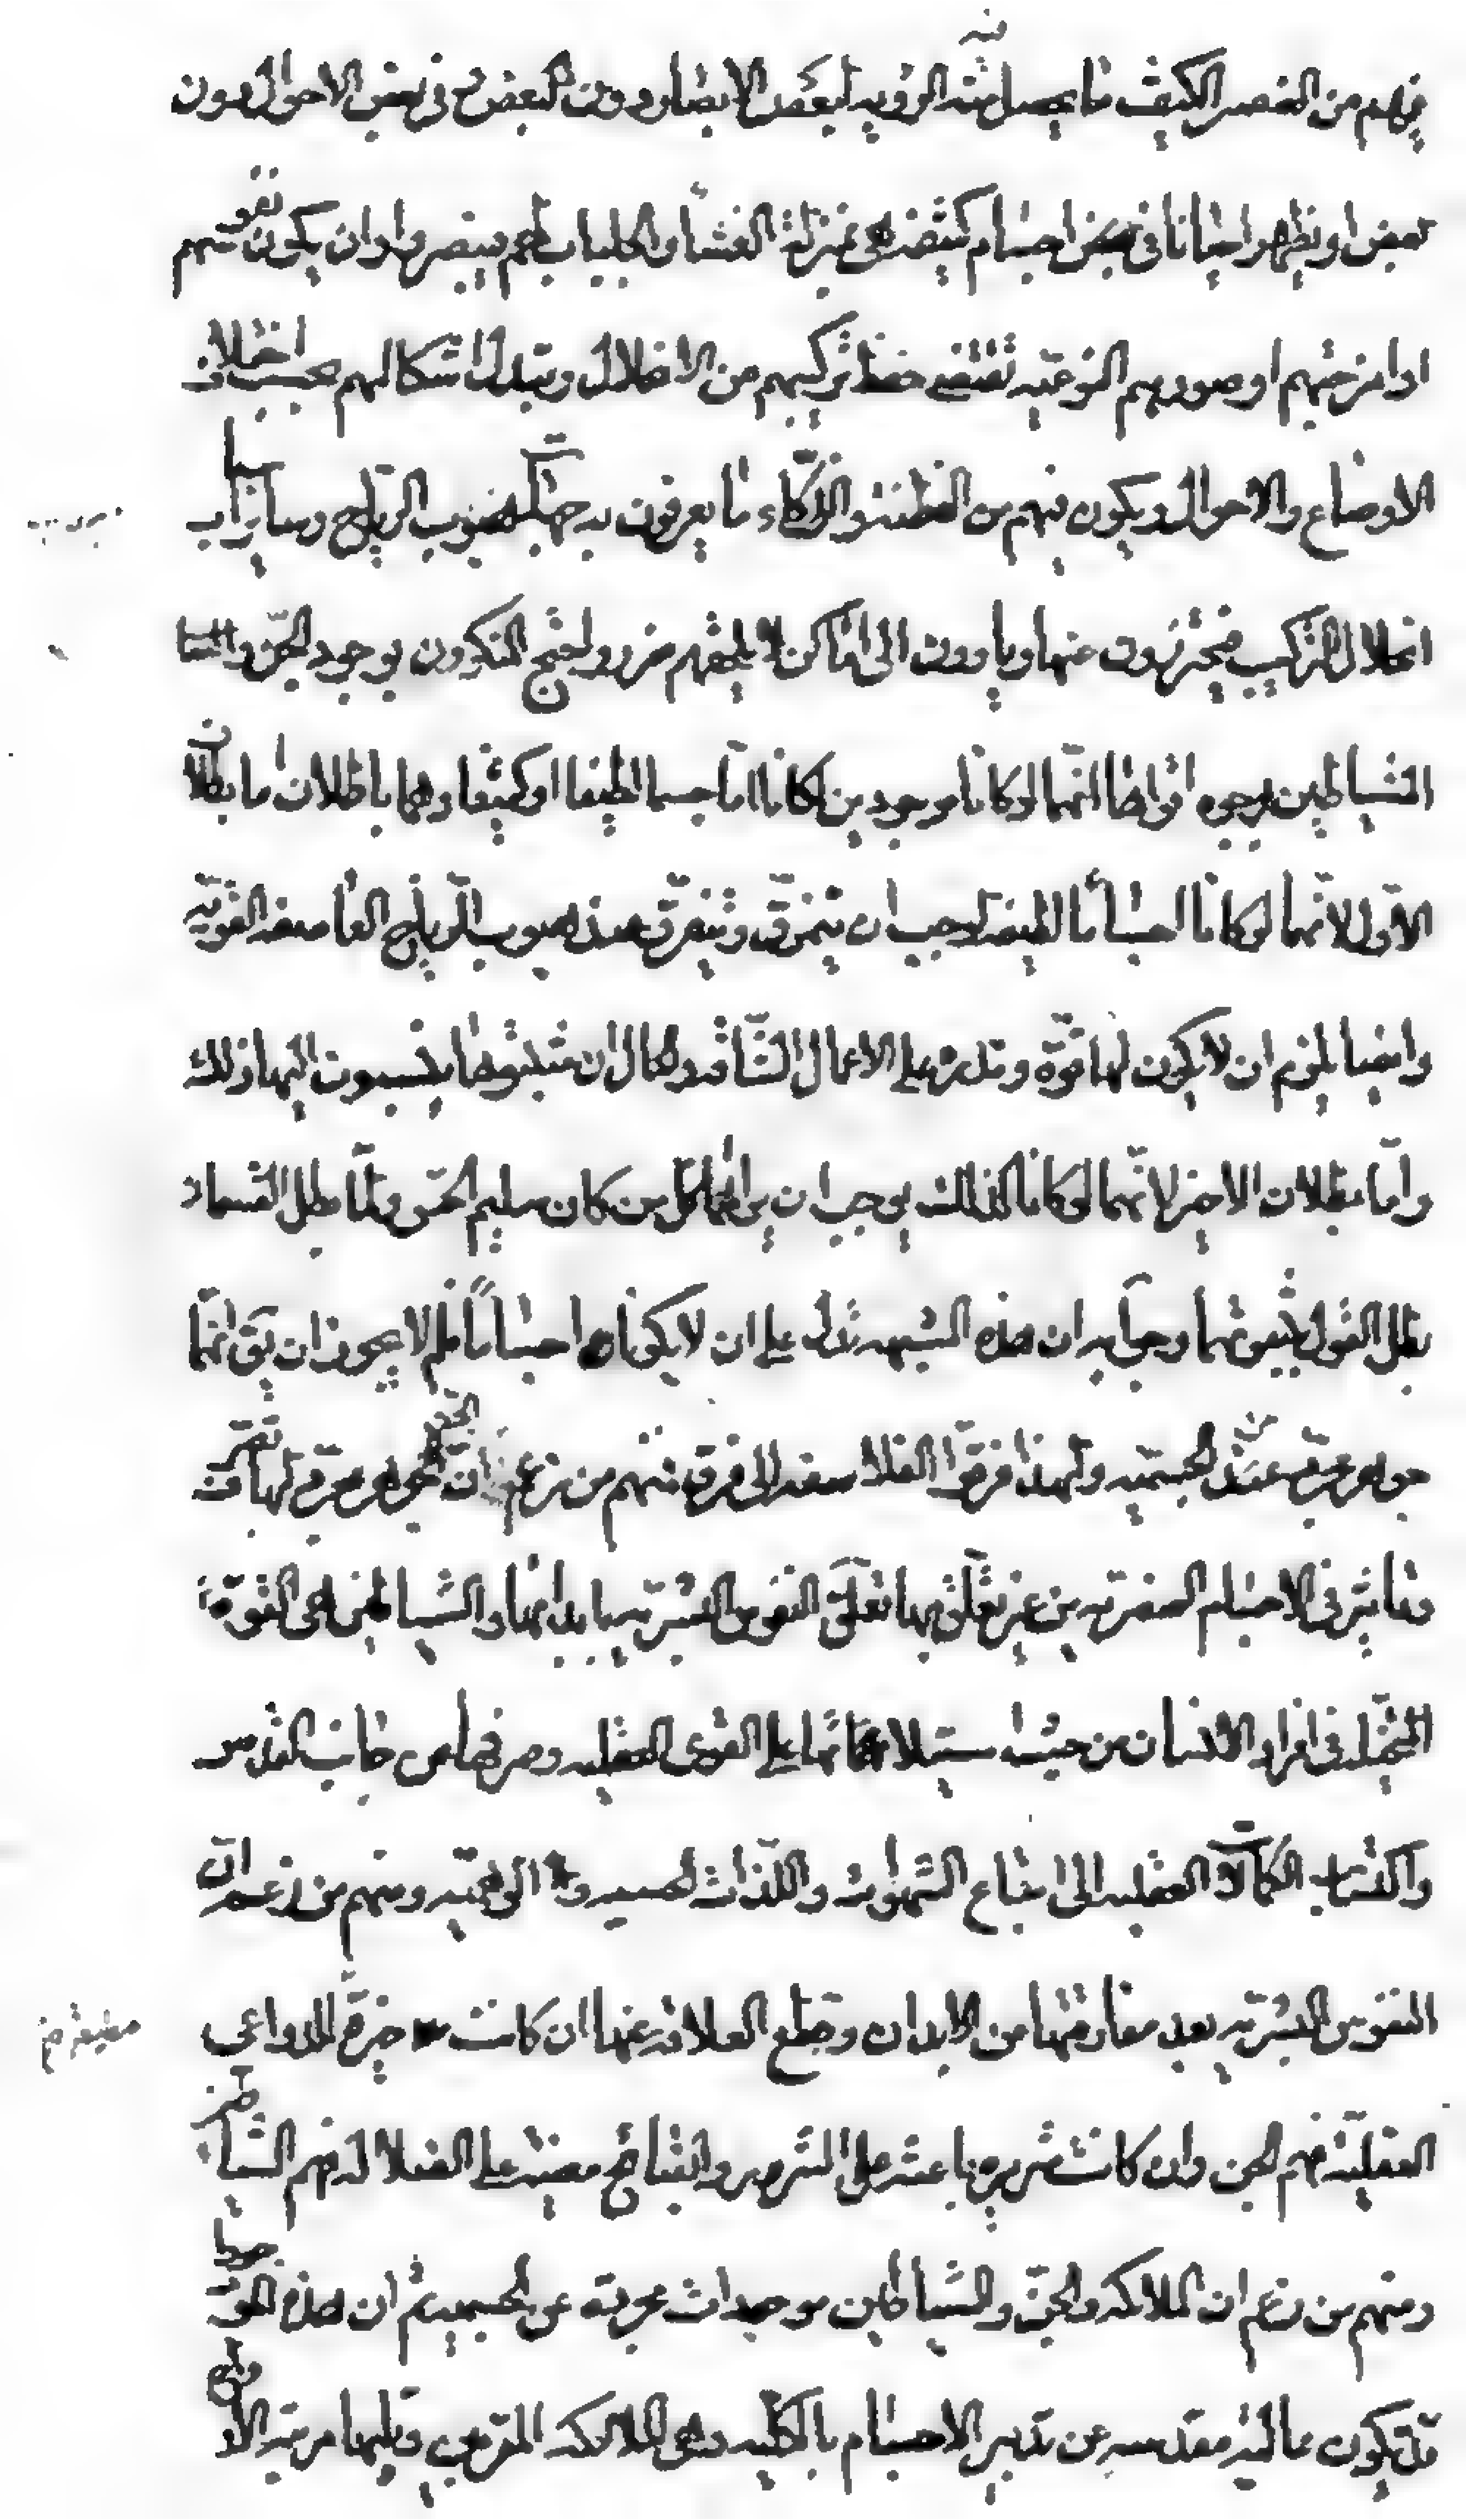 فيهم من العنصر الكثيف ما يحصل منه الرؤيه لبعض الابصار دون البعض و في بعض الاحوال دون
بعض او يظهر احيانا في بعض اجسام كثيفة هي بمنزلة الغشاء والجلباب لهم فيبصروا وان يكون نفوسهم
او امزجتهم او صورهم النوعيه تقتضي حفظ تركيبهم من الانحلال وتبدل اشكالهم بحسب اختلاف
الاوضاع والاحوال ويكون فيهم من الفطنة والذكاء ما يعرفون به جهات هبوب الرياح وساير اسباب
انحلال التركيب فيحترزون عنها وياوون الى اماكن لا يلحقهم ضرر واحتج المنكرون بوجود الجن و
الشياطين بوجوه اقواها انهما لو كانا موجودين لكانا اما جسما لطيفا او كثيفا وهما باطلان اما بطلان
الاول لانهما لو كانا اجساما لطيفة لوجب ان يتمزق ويتفرق عند هبوب الرياح العاصفة القويه
وايضا يلزم ان لا يكون لها قوة وقدرة على الاعمال الشاقه والحال ان مثبتوها ينسبون اليها ذلك
واما بطلان الاخير لانهما لو كانا كذلك يوجب ان يراهما كل من كان سليم الحس ولما بطل القسمان
بطل القول بثبوتهما وجوابه ان هذه الشبهه تدل على ان لا يكونا اجساما فلم لا يجوز ان يق انهما
جواهر مجردة عن الجسميه ولهذا فرقوا الفلاسفه الى فرق منهم من زعم ان الجن جواهر مجردة لها تصرف
وتاثير في الاجسام العنصريه من غير تعلق بها تعلق النفوس البشريه بابدانها والشياطين هي القوة
المتخيلة في افراد الانسان من حيث استيلائها على القوى العقليه وصرفها عن جانب القدس
واكتساب الكمالات العقليه الى اتباع الشهوات واللذات الحسيه و الوهميه ومنهم من زعم ان
النفوس البشريه بعد مفارقتها من الابدان وقطع العلاقة عنها ان كانت خيرة للدواعي
العقليه فهم الجن وان كانت شريره باعثه على الشرور والقبائح معينة على الضلاله فهم الشياطين
ومنهم من زعم ان الملائكه والجن والشياطين موجودات مجردة عن الجسميه ثم ان هذه الموجودات
قد يكون عالية مقدسه عن تدبير الاجسام بالكليه وهي الملائكه المقربين ويليها مرتبه الارواح